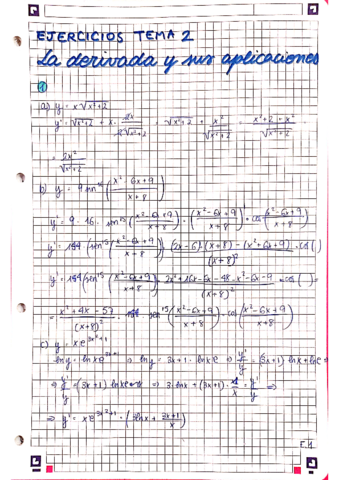 EJERCICIOS TEMA 2
La derivada y sus aplicaciones
①
a) y = x√(x²+2)
y' = √(x²+2) + x · 2x / 2√(x²+2) = √(x²+2) + x²/√(x²+2) = (x²+2+x²)/√(x²+2)
= 2x²/√(x²+2)
b) y = 9 sen¹⁶((x²-6x+9)/(x+8))
y' = 9 · 16 · sen¹⁵((x²-6x+9)/(x+8)) · ((x²-6x+9)/(x+8))' · cos((x²-6x+9)/(x+8))
y' = 144 (sen¹⁵((x²-6x+9)/(x+8))) · ((2x-6)·(x+8) - (x²-6x+9))/(x+8)² · cos( )
y' = 144 (sen¹⁵((x²-6x+9)/(x+8))) · (2x²+16x-6x-48-x²-6x-9)/(x+8)² · cos( ) =
= (x²+4x-57)/(x+8)² · 144 · sen¹⁵((x²-6x+9)/(x+8)) · cos((x²-6x+9)/(x+8))
c) y = x e^(3x²+1)
⇒ y' = x e^(3x²+1) · (3lnx + (3x+1)/x)